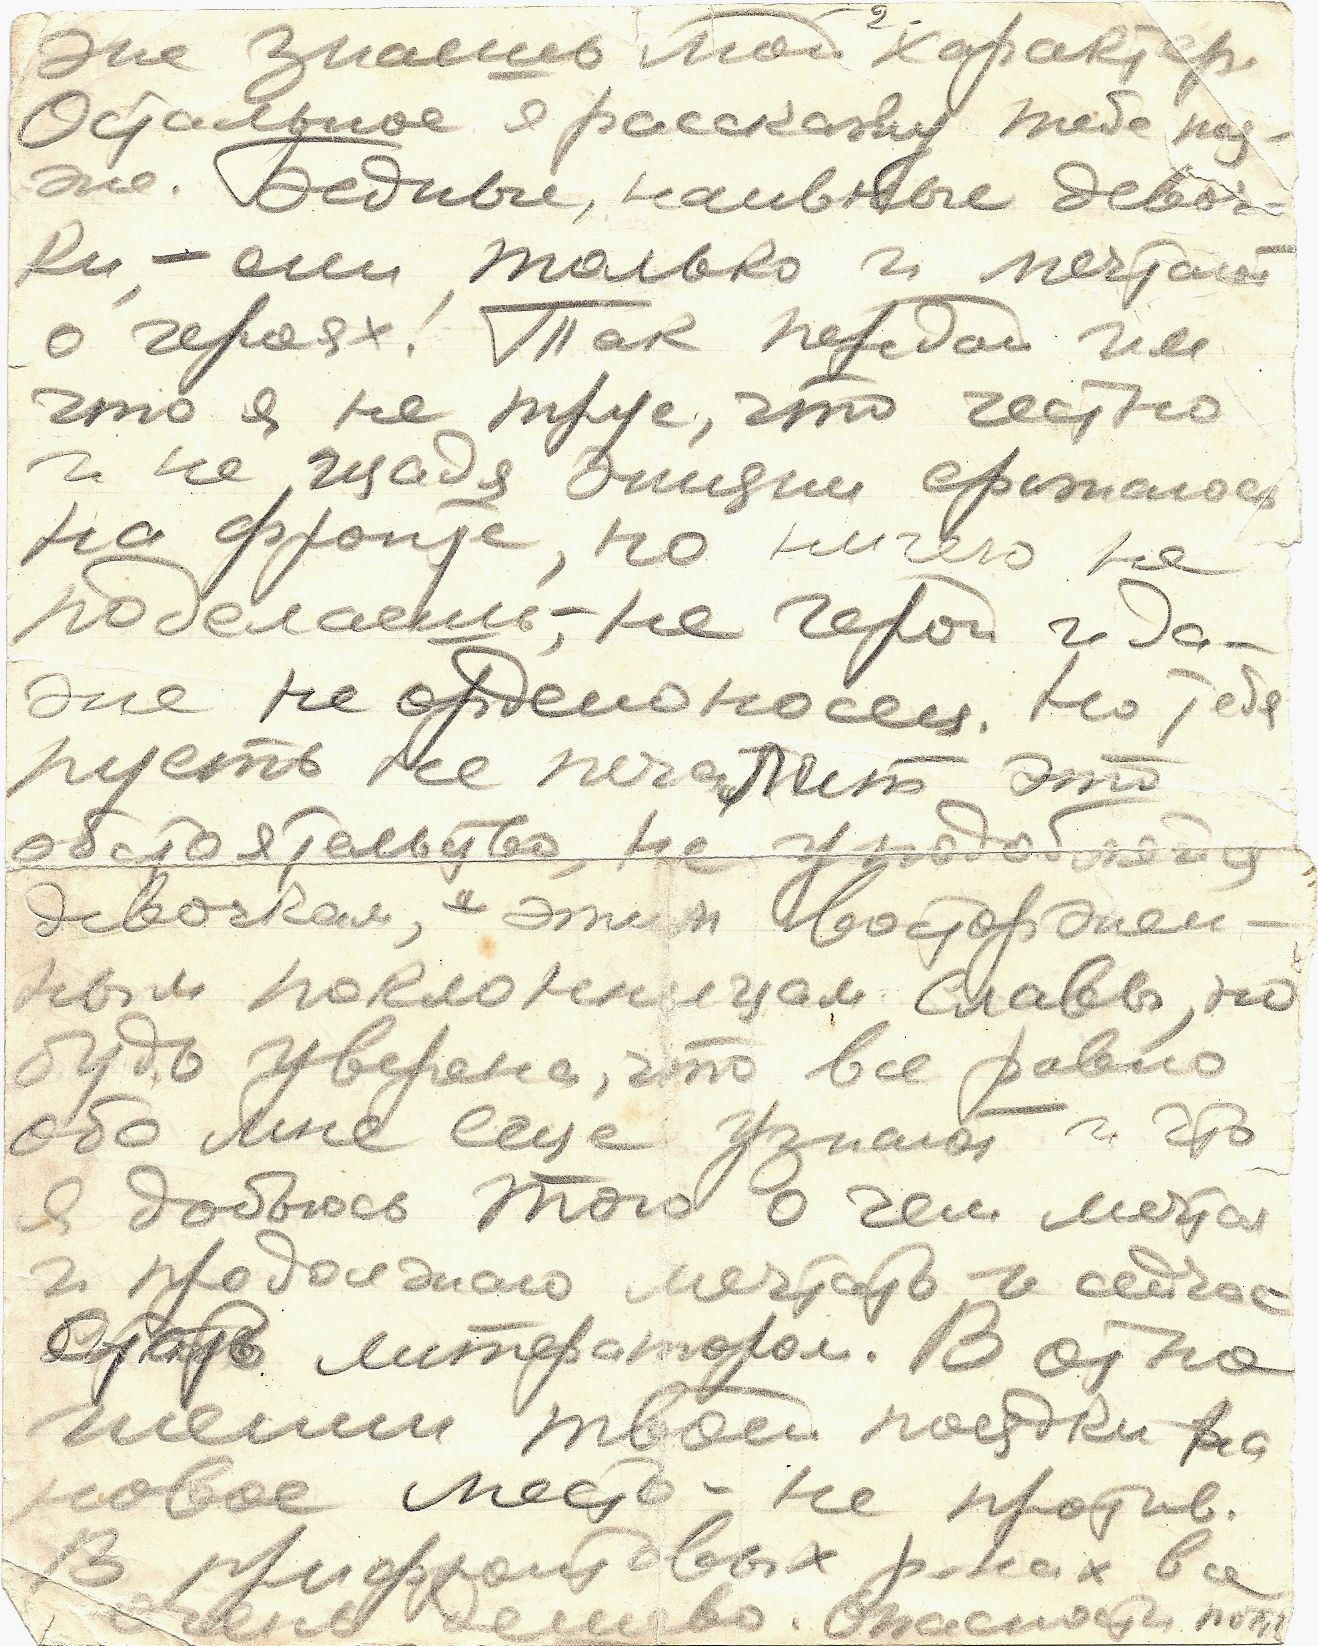 2.
же знаешь мой характер.
Остальное я расскажу тебе поз-
же. Бедные, наивные девоч-
ки, - они только и мечтают
о героях! Так передай им
что я не трус, что честно
и не щадя жизни сражаюсь
на фронте, но ничего не
поделаешь, - не герой и да-
же не орденоносец. Но тебя
пусть не печалит это
обстоятельство, не уподобляйся
девочкам, - этим восторжен-
ным поклонницам славы, но
будь уверена, что все равно
обо мне еще узнают и что
я добьюсь того о чем мечтал
и продолжаю мечтать и сейчас
стать литератором. В отно
шении твоей поездки на
новое место - не против.
В прифронтовых р-нах все
очень дешево. Опасности почти